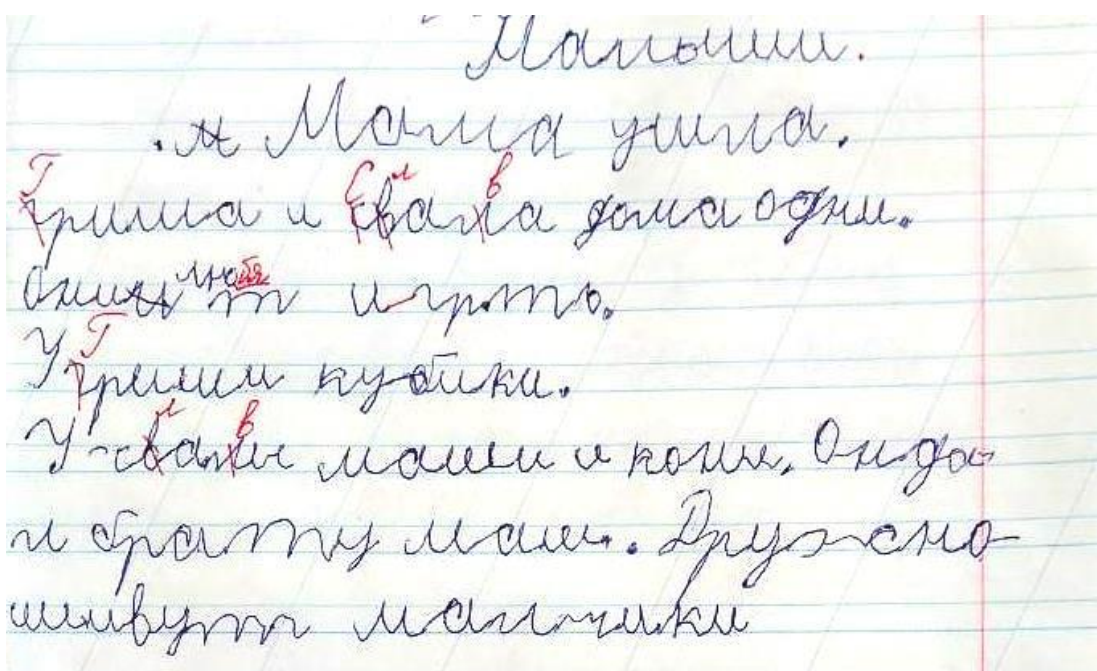 Малыши.
. н Мама ушла.
гриша и свала дома одни.
Они любят игрть.
У гриши кубики.
У свалы маши и кони. Он да-
л брату маш. Дружно
шивут малчики